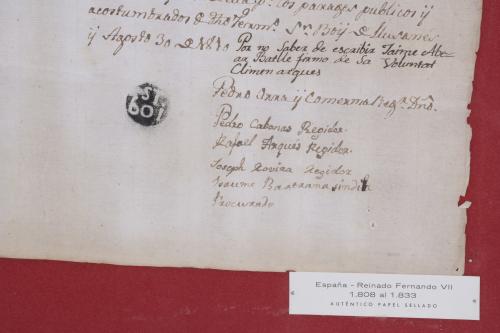 los parages publicos y
acostumbrados de dho termo. Sn. Boy de Llusanes
y Agosto 30 de 1810
Por no Saber de escribir Jaime
Batlle firmo de sa Voluntat
Climen arques
Pedro y Comerma
Pedro Cabanas Regidor
Rafael Arqués Regidor
Joseph Rovira Regidor
Jaume sindich
Procurado
S
601
España - Reinado Fernando VII
1.808 al 1.833
AUTÉNTICO PAPEL SELLADO